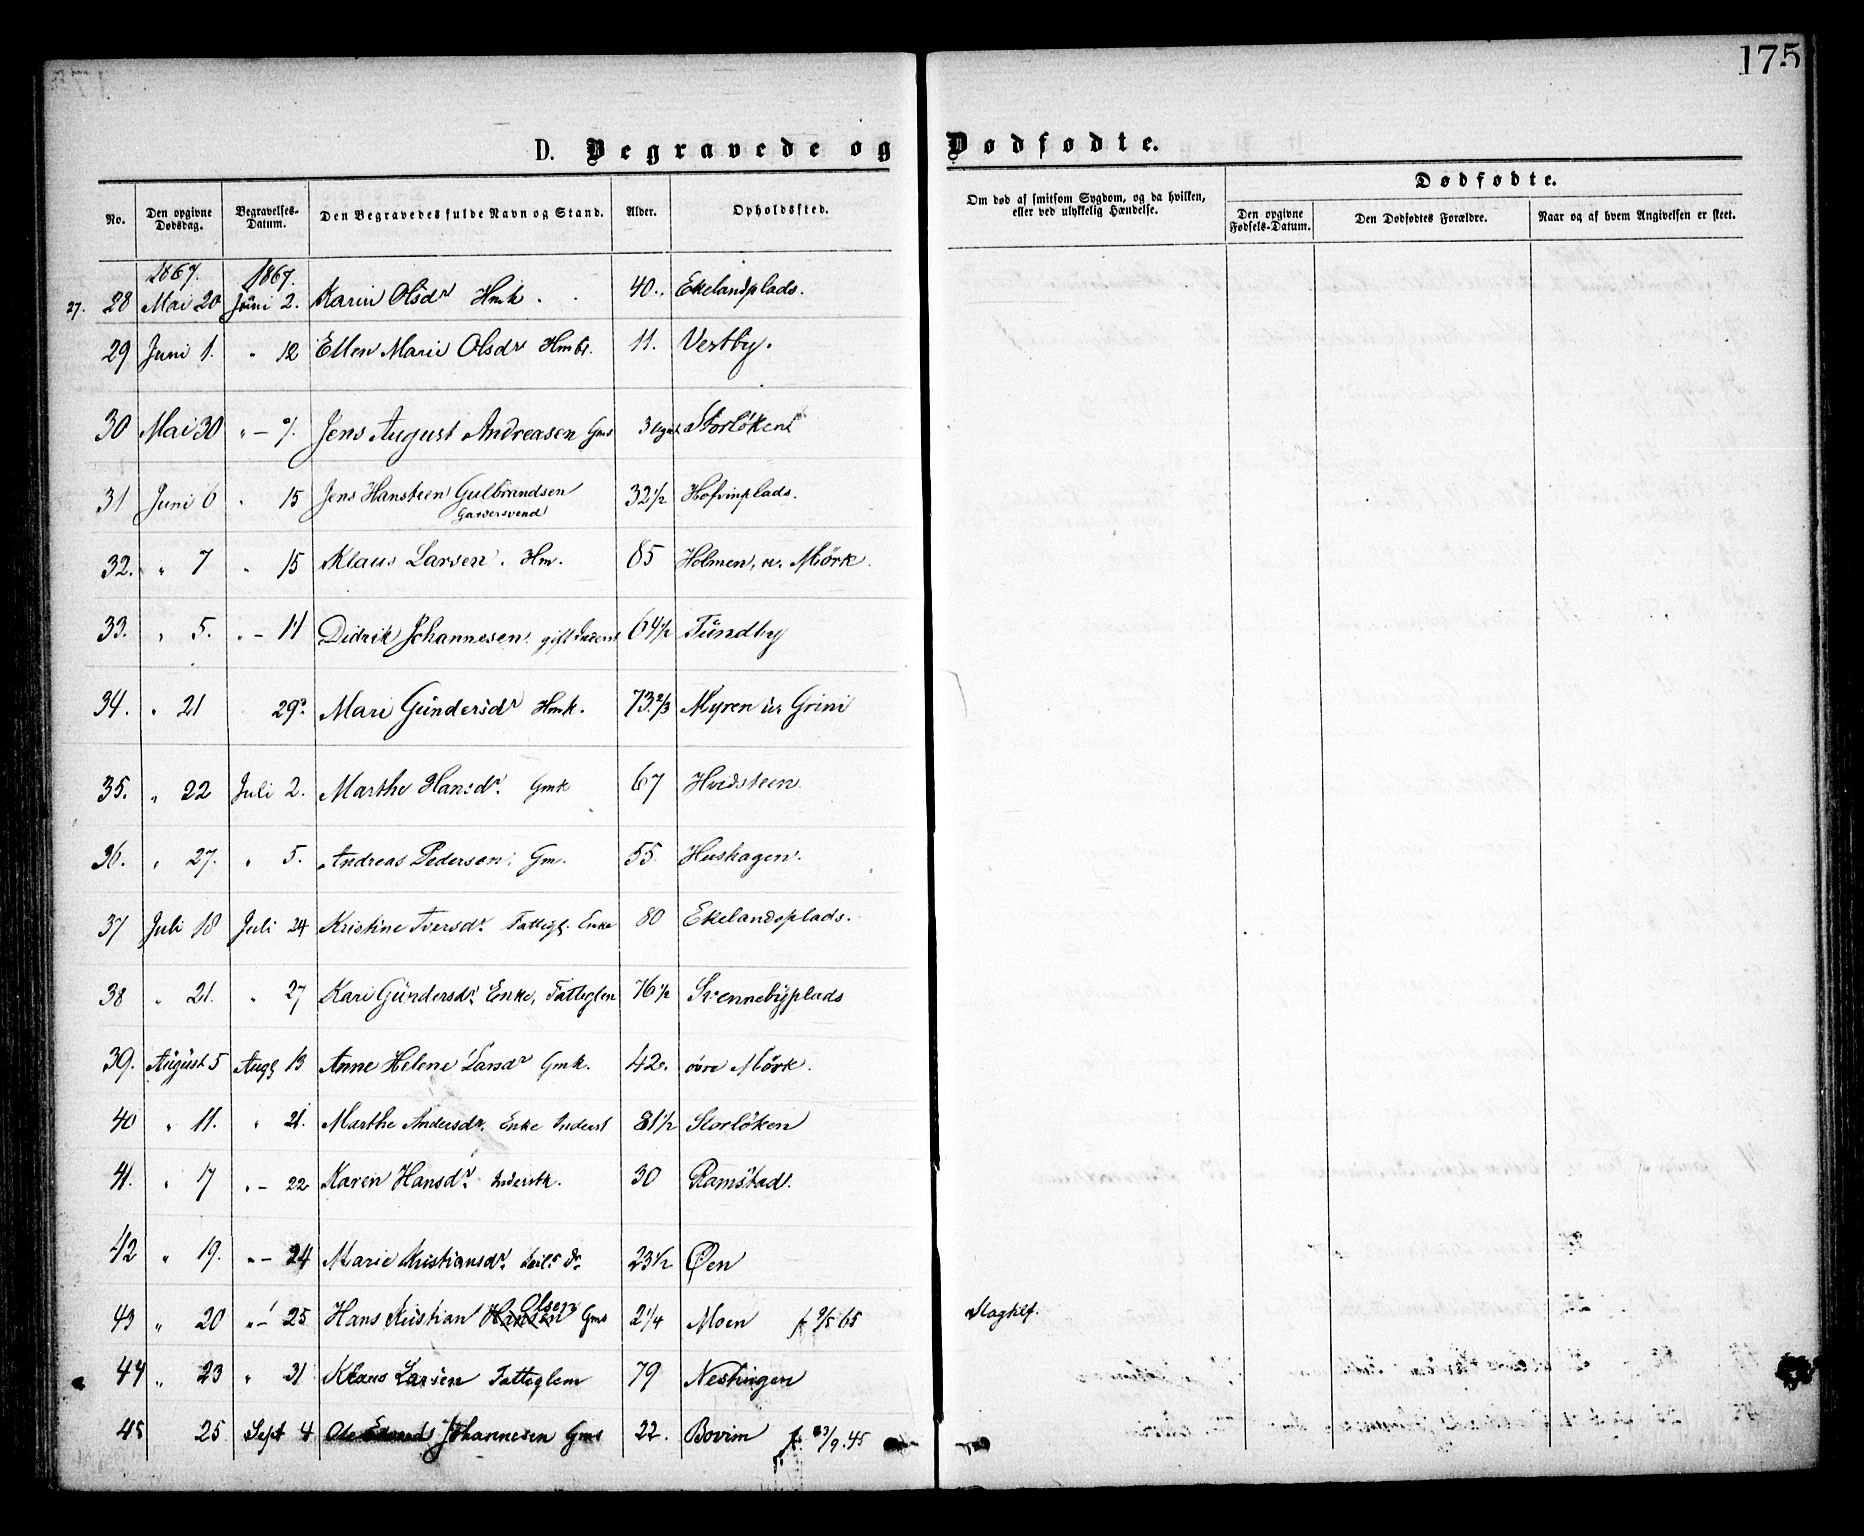 175
D. Begravede og Dødfødte.
No. Den opgivne Dødsdag. Begravelses-Datum. Den Begravedes fulde Navn og Stand. Alder. Opholdssted. Om død af smitsom Sygdom, og da hvilken, eller ved ulykkelig Hændelse. Dødfødte.
Den opgivne Fødsels-Datum. Den Dødfødtes Forældre. Naar og af hvem Angivelsen er skeet.
1867. 1867.
27. 28 Mai 20 Juni 2. Karin Olsdr Hmk. 40. Ekelandplads.
29 Juni 1. " 12 Ellen Marie Olsdr 11. Vestby.
30 Mai 30 " — Jens August Andreasen Gms 3 Storlöken
31 Juni 6 " 15 Jens Hansteen Gulbrandsen 32½ Hofvinplads.
Garversvend
32. " 7 " 15 Klaus Larsen. Hm. 85 Holmen, u. Mörk.
33. " 5. " — 11 Didrik Johannesen gift Inderst 64½ Tündby
34. " 21 29 Mari Gündersdr Hmk. 73 2/3 Myren u. Grini
35. " 22 Juli 2. Marthe Hansdr. Gmk 67 Hvidsteen.
36. " 27. " 5. Andreas Pedersen Gm. 55 Hushagen.
37 Juli 18 Juli 24 Kristine Iversdr. Fattigl. Enke 80 Ekelandsplads.
38 " 21. " 27 Kari Gündersdr. Enke, Fatteglem 76½ Svennebyplads
39. August 5 Aug 13 Anne Helene Larsdr Gmk. 42. övre Mörk.
40 " 11. " 21. Marthe Andersdr. Enke Inderst 81½ Storlöken
41. " 17 " — 22 Karen Hansdr. Inderstk. 30 Ramstad.
42 " 19. " — 24 Marie Kristiansdr. 23½ Øen
Olsen
43 " 20 " — 25 Hans Kristian Hansen Gms 2¼ Moen f. 9/5 65 Slagtilf.
44 " 23 " 31 Klaus Larsen Fatteglem 79 Nestingen
45 25. Sept 4 Ole Johannesen Gms 22. Bovim f. 23/9. 45